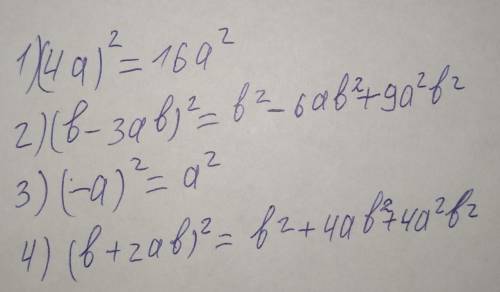 1)(4a)² = 16a²
2)(b-3ab)² = b²-6ab²+9a²b²
3)(-a)² = a²
4)(b+2ab)² = b²+4ab²+4a²b²